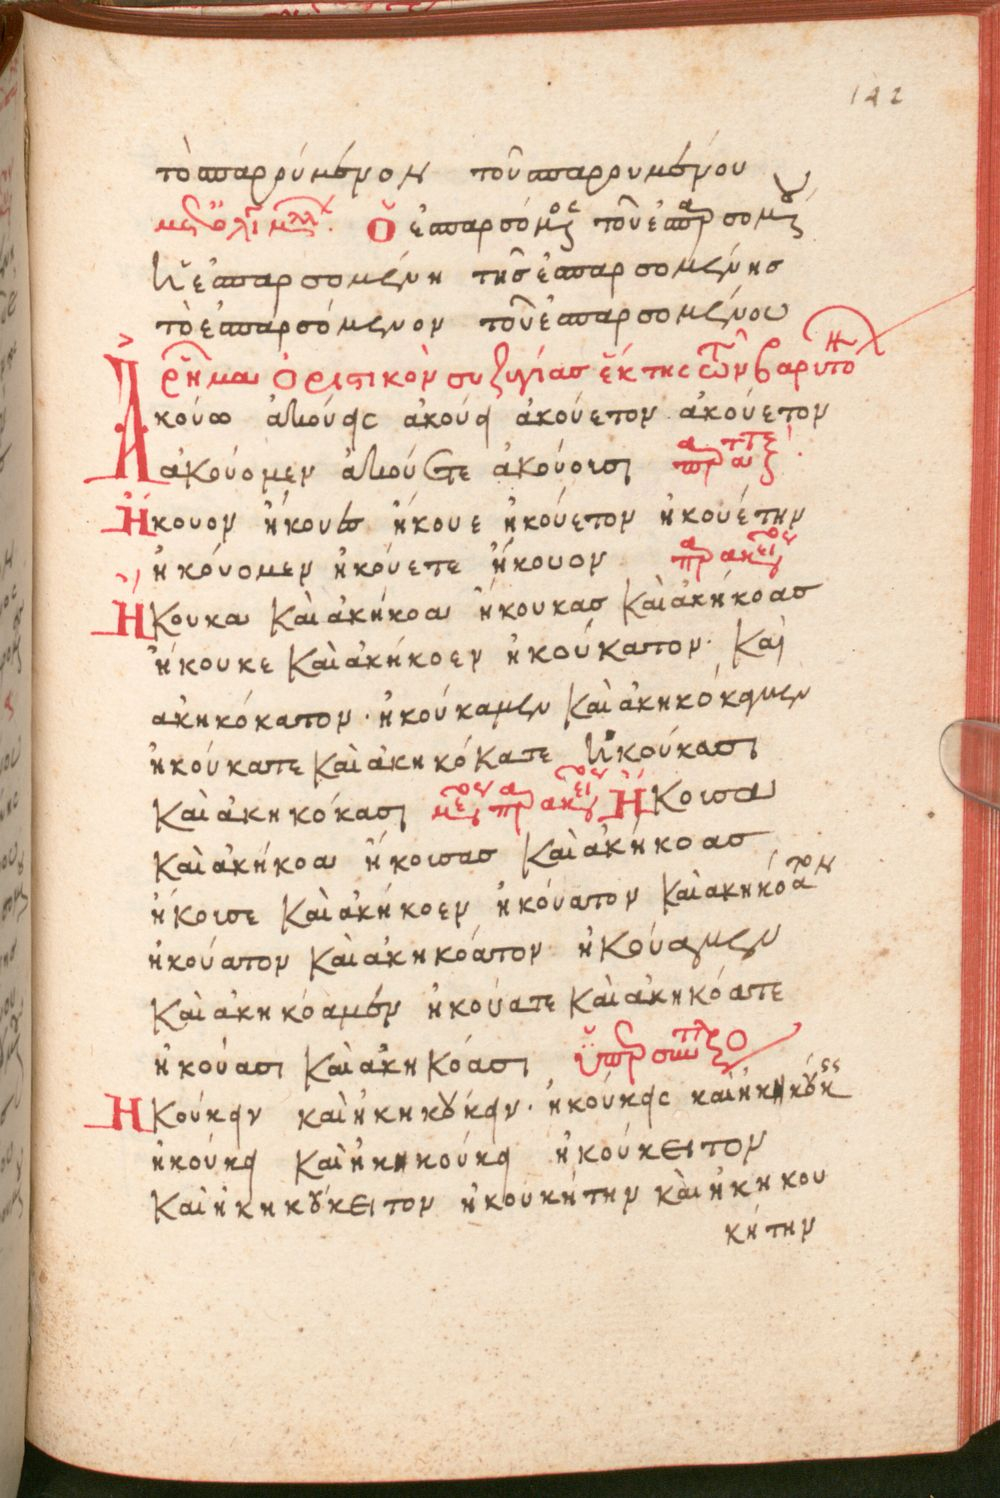 142
τὸ σπαρρύμενον τοῦ σπαρρυμένου
μετ' ὀλίγον μέλλων. Ὁ ἐσπαρσόμενος τοῦ ἐσπαρσομένου
ἡ ἐσπαρσομένη τῆς ἐσπαρσομένης
τὸ ἐσπαρσόμενον τοῦ ἐσπαρσομένου
ῥῆμα ὁριστικὸν συζυγίας ἕκτης τῶν βαρυτόνων
Ἀκούω ἀκούεις ἀκούει ἀκούετον ἀκούετον
ἀκούομεν ἀκούετε ἀκούουσι παρατατικός
Ἤκουον ἤκουες ἤκουε ἠκούετον ἠκουέτην
ἠκούομεν ἠκούετε ἤκουον παρακείμενος
Ἤκουκα καὶ ἀκήκοα ἤκουκας καὶ ἀκήκοας
ἤκουκε καὶ ἀκήκοεν ἠκούκατον· καὶ
ἀκηκόκατον· ἠκούκαμεν καὶ ἀκηκόκαμεν
ἠκούκατε καὶ ἀκηκόκατε ἠκούκασι
καὶ ἀκηκόκασι μέσος παρακείμενος Ἤκουσα
καὶ ἀκήκοα ἤκουσας καὶ ἀκήκοας
ἤκουσε καὶ ἀκήκοεν ἠκούατον καὶ ἀκηκόατον
ἠκούατον καὶ ἀκηκόατον ἠκούαμεν
καὶ ἀκηκόαμεν ἠκούατε καὶ ἀκηκόατε
ἠκούασι καὶ ἀκηκόασι ὑπερσυντέλικος
Ἠκούκειν καὶ ἠκηκούκειν· ἠκούκεις καὶ ἠκηκούκεις
ἠκούκει καὶ ἠκηκούκει ἠκούκειτον
καὶ ἠκηκούκειτον ἠκουκήτην καὶ ἠκηκου
κήτην